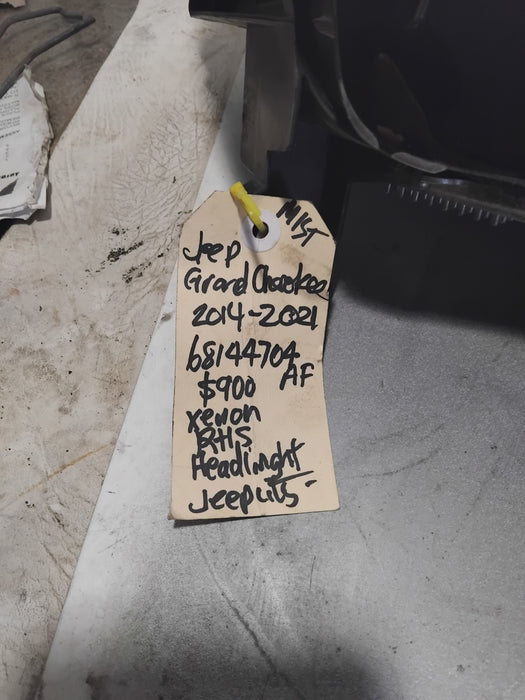 MIST
Jeep
Grand Cherokee
2014-2021
68144704
AF
$900
xenon
RHS
Headlinght